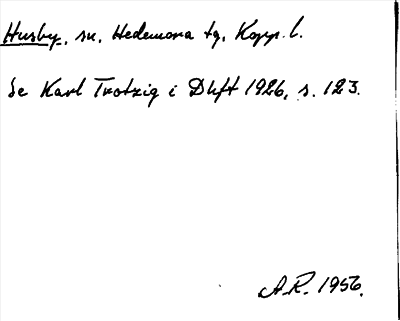 Husby, sn, Hedemora tg, Kopp. l.
Se Karl Trotzig i Dhft 1926, s. 123.
A.R. 1956.